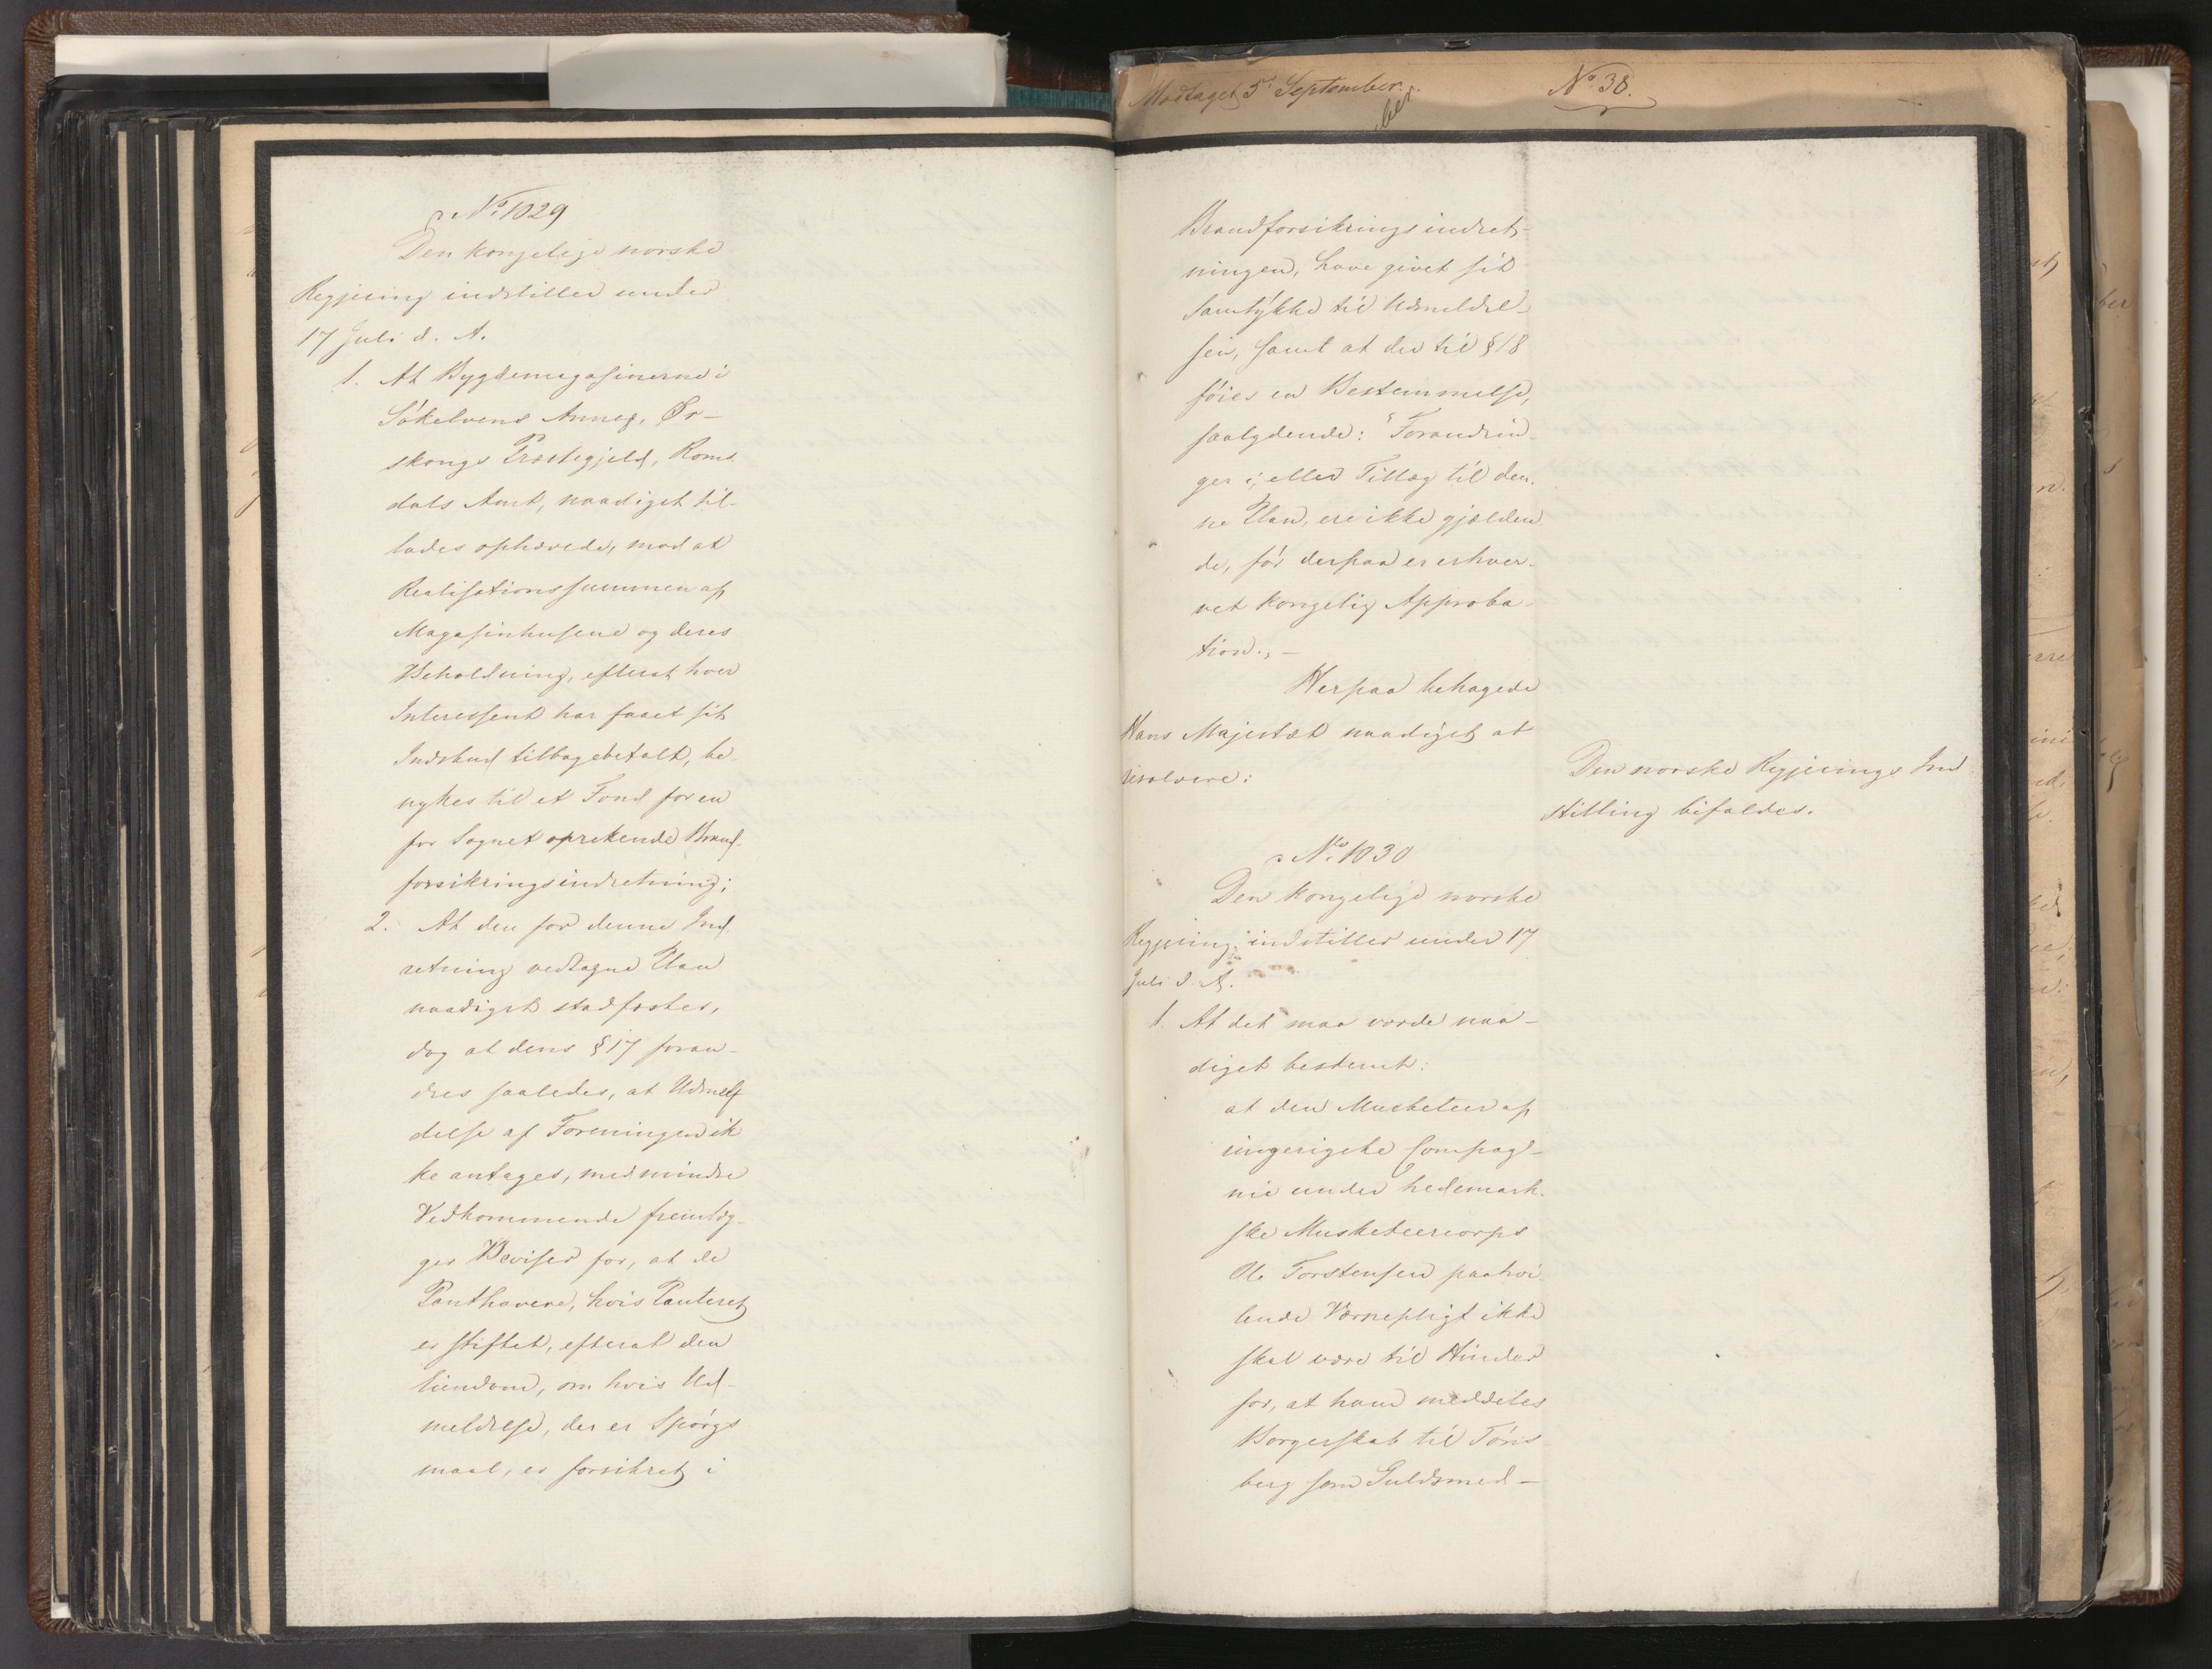 No 1029
Den kongelige norske
Regjering indstiller under
17 Juli d. A.
1. At Bygdemagasinerne i
Søkelvens Annex, Ør-
skougs Præstegjeld, Roms-
dals Amt, naadigst til-
lades ophævede, mod at
Realisationssummen af
Magasinhusene og deres
Beholdning, efterat hver
Interessent har faaet sit
Indskud tilbagebetalt, be-
nyttes til et Fond for en
for Sognet oprettende Brand-
forsikringsindretning;
2. At den for denne Ind-
retning vedtagne Plan
naadigst stadfæstes,
dog at dens § 17 foran-
dres saaledes, at Udmel-
delse af Foreningen ik-
ke antages, medmindre
Vedkommende fremlæg-
ger Beviser for, at de
Panthavere, hvis Panteret
er stiftet, efterat den
Eiendom, om hvis Ud-
meldelse, der er Spørgs-
maal, er forsikret i
Modtaget 5te September.
ber
No 38.
Brandforsikringsindret-
ningen, have givet sit
Samtykke til Udmeldel-
sen, samt at der til § 18
føies en Bestemmelse,
saalydende: "Forandrin-
ger i, eller Tillæg til den-
ne Plan, ere ikke gjælden-
de, før derpaa er erhver-
vet kongelig Approba-
tion., -
Herpaa behagede
Hans Majestæt naadigst at
resolvere:
Den norske Regjerings Ind-
stilling bifaldes.
No 1030
Den kongelige norske
Regjering indstiller under 17
Juli d. A.
1. At det maa vorde naa-
digst bestemt:
at den Musketeer af
ringerigske Compag-
nie under hedemark-
ske Musketeercorps
Ole Torstensen paahvi-
lende Værnepligt ikke
skal være til Hinder
for, at ham meddeles
Borgerskab til Tøns-
berg som Guldsmed-